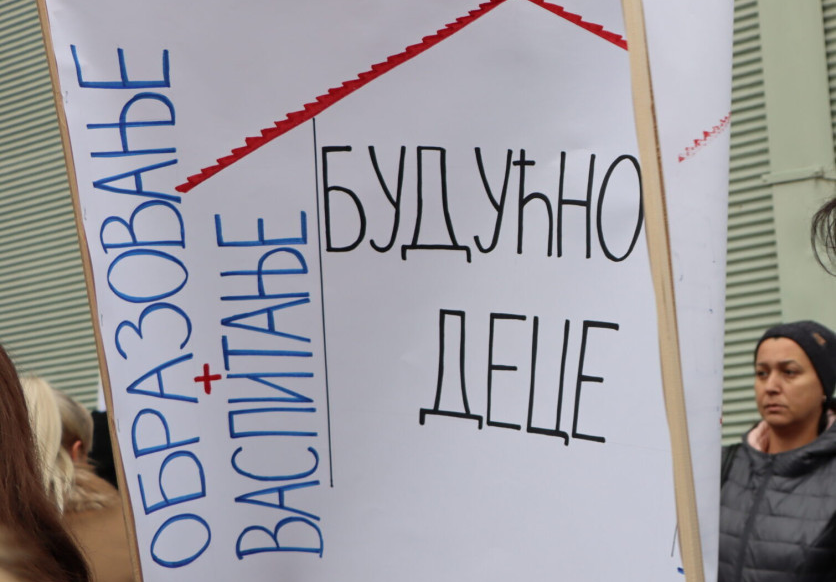 ОБРАЗОВАЊЕ
+
ВАСПИТАЊЕ
БУДУЋНО
ДЕЦЕ